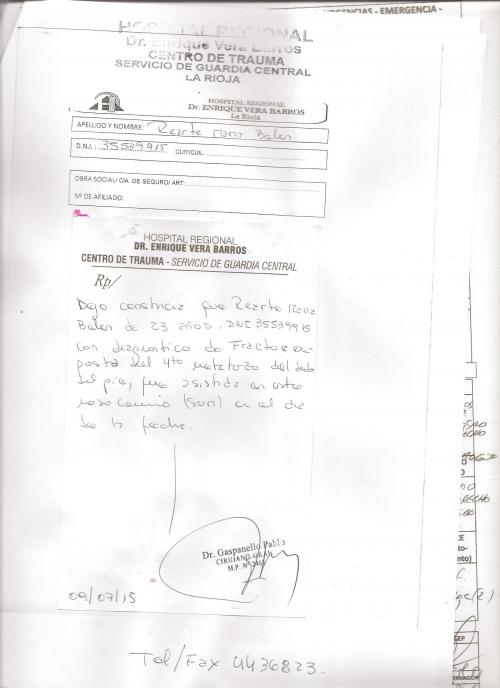 URGENCIAS - EMERGENCIA -
HOSPITAL REGIONAL
Dr. Enrique Vera Barros
CENTRO DE TRAUMA
SERVICIO DE GUARDIA CENTRAL
LA RIOJA
HOSPITAL REGIONAL
Dr. ENRIQUE VERA BARROS
La Rioja
APELLIDO Y NOMBRE: Rearte Maria Belen
D.N.I.: 35539915 CUIT/CUIL:
OBRA SOCIAL/ CIA. DE SEGURO/ ART:
Nº DE AFILIADO:
HOSPITAL REGIONAL
DR. ENRIQUE VERA BARROS
CENTRO DE TRAUMA - SERVICIO DE GUARDIA CENTRAL
Rp/
Dejo constancia que Rearte Maria
Belen de 23 años, DNI 35539915
con diagnostico de Fractura ex-
puesta del 4to metatarso del dedo
del pie, fue asistida en
nosocomio en el dia
de la fecha.
Dr. Gaspanello Pablo
CIRUJANO GRAL.
M.P. Nº
09/07/15
Tel/Fax 4436823.